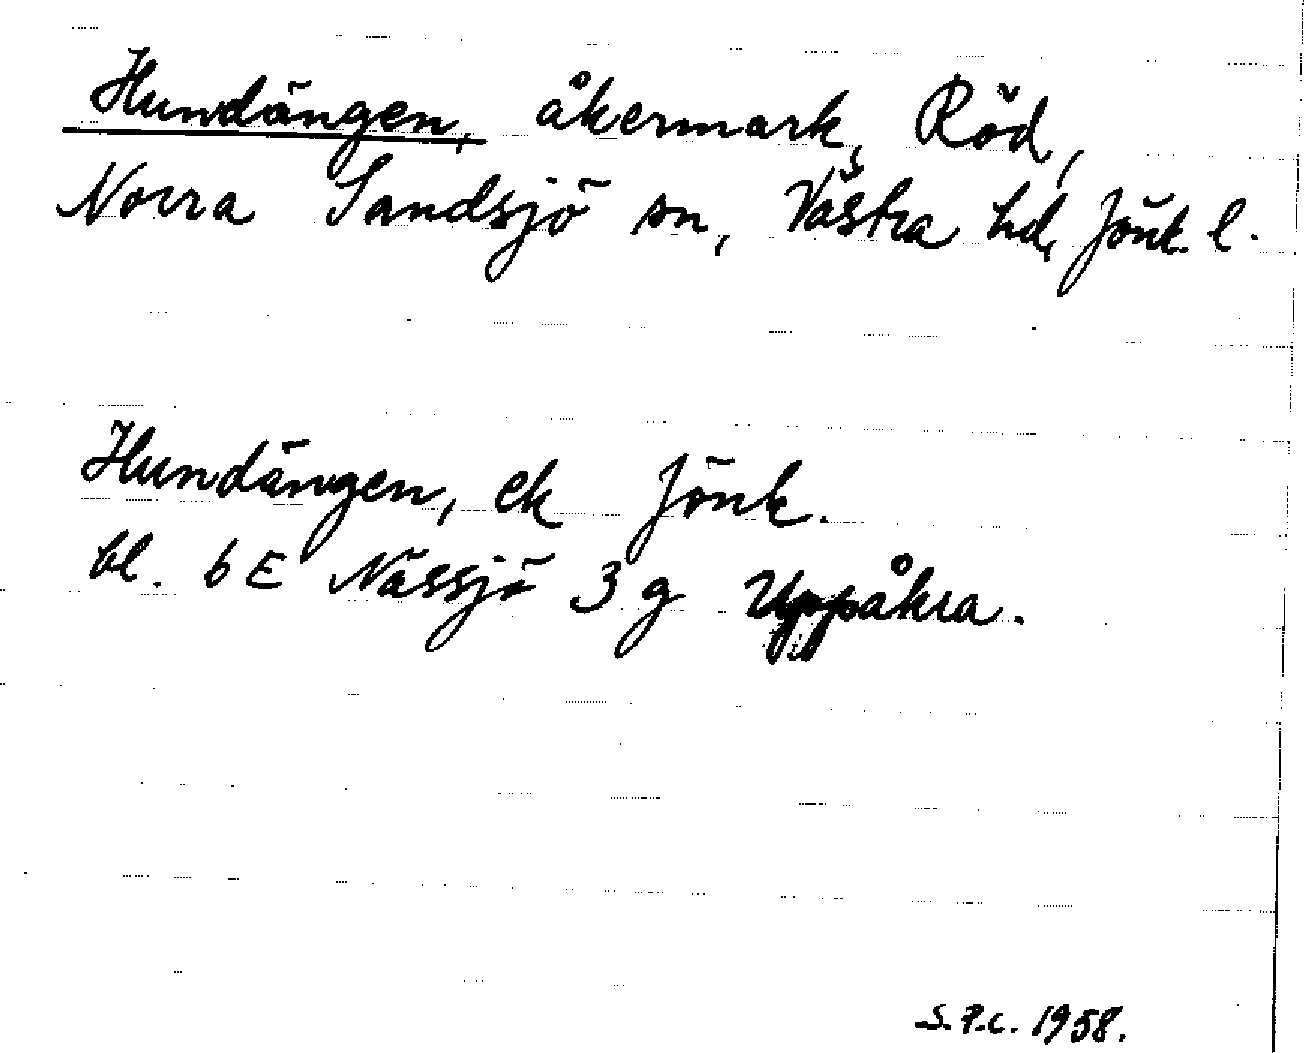 Hundängen, åkermark, Röd,
Norra Sandsjö sn, Västra hd, Jönk. l.
Hundängen, ek Jönk.
bl. 6 E Nässjö 3 g Uppåkra.
S.P.C. 1958.